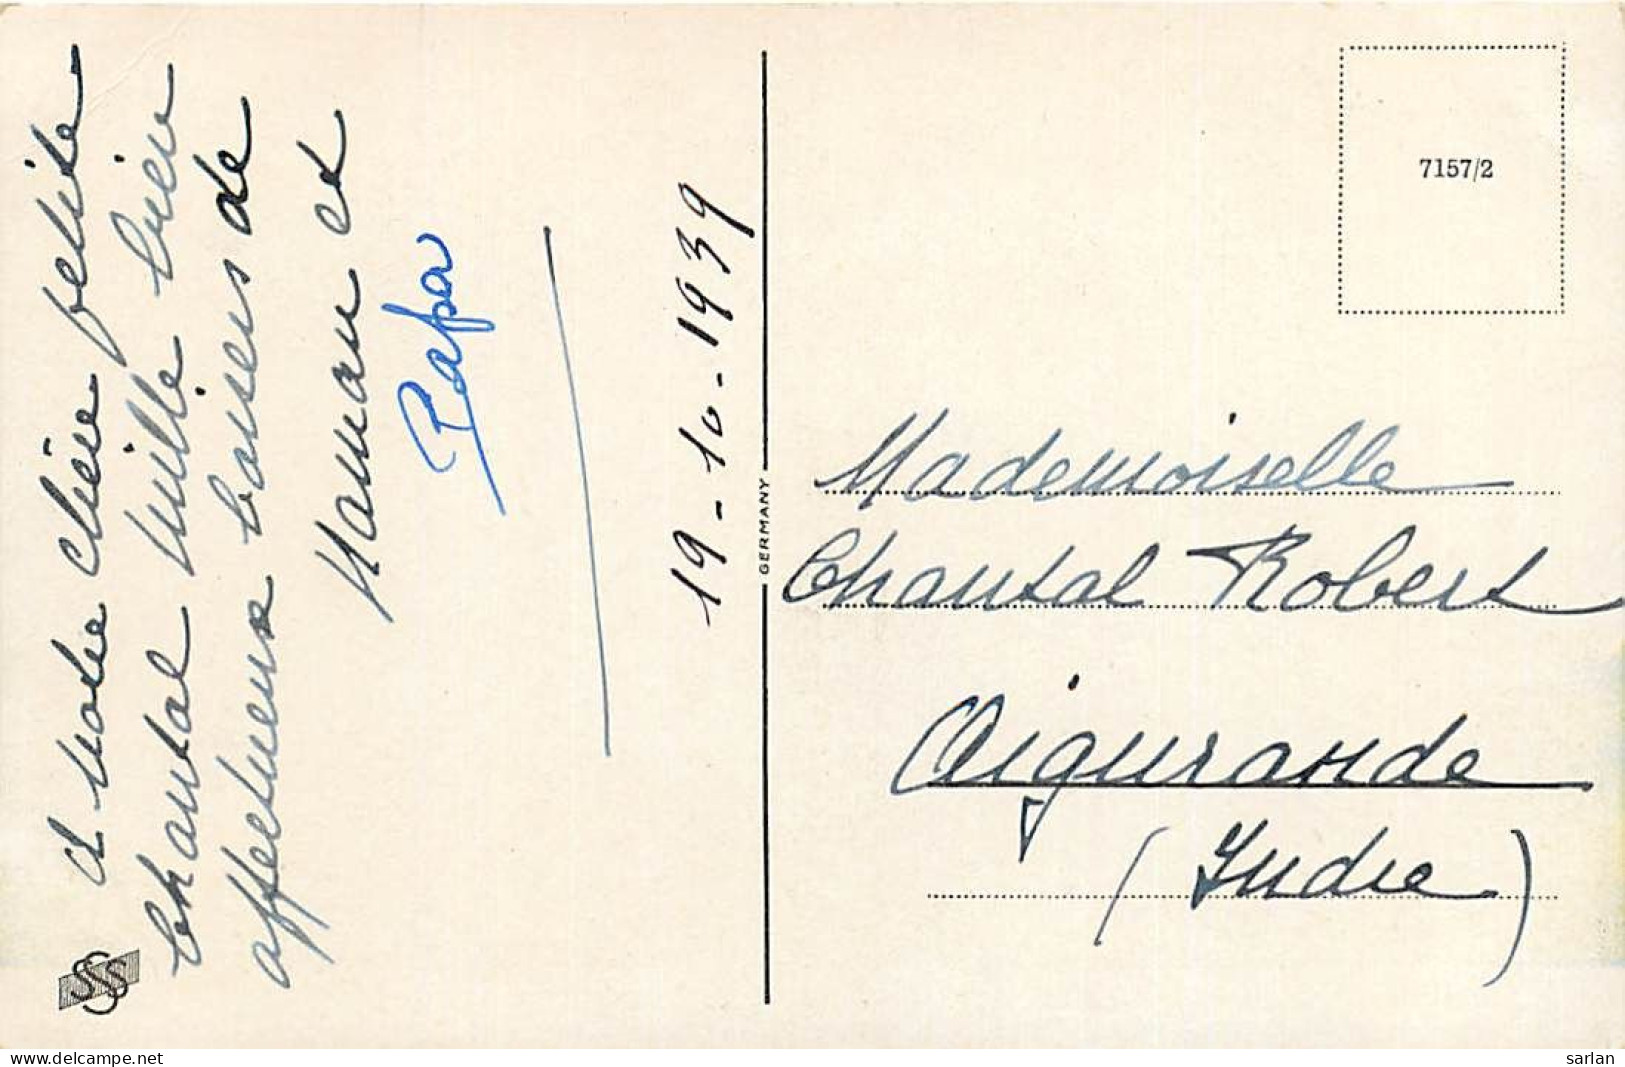 A notre chère petite
Chantal mille bien
affectueux baisers de
Maman et
Papa
19-10-1939
GERMANY
7157/2
Mademoiselle
Chantal Robert
Aigurande
(Indre)
www.delcampe.net
sarlan